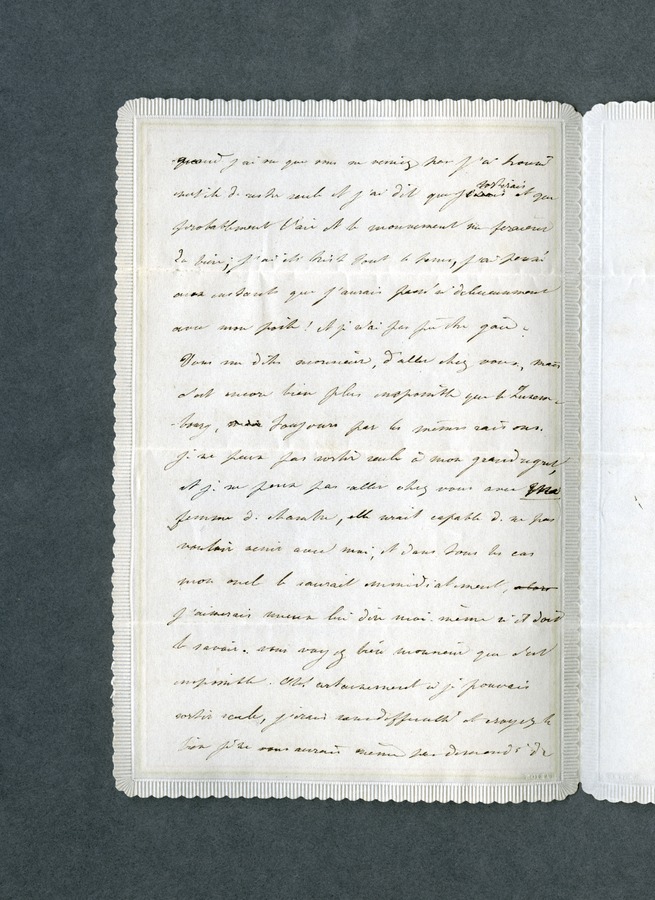 quand j'ai vu que vous ne veniez pas j'ai trouvé
inutile de rester seule et j'ai dit que je sortirais et que
probablement l'air et le mouvement me feraient
du bien; j'ai été triste tout le tems, j'ai pensé
aux instants que j'aurais passé si délicieusement
avec mon poëte! et je n'ai pas pu être gaie.
Vous me dites monsieur, d'aller chez vous, mais
c'est encore bien plus impossible que le Luxem-
bourg, toujours par les mêmes raisons.
je ne peux pas sortir seule à mon grand regret,
et je ne peux pas aller chez vous avec ma
femme de chambre, elle serait capable de ne pas
vouloir venir avec moi, et dans tous les cas
mon oncle le saurait immédiatement, alors
j'aimerais mieux lui dire moi-même s'il doit
le savoir. vous voyez bien monsieur que c'est
impossible. Oh! certainement si je pouvais
sortir seule, j'irais sans difficulté et croyez le
bien je ne vous aurais même pas demandé de